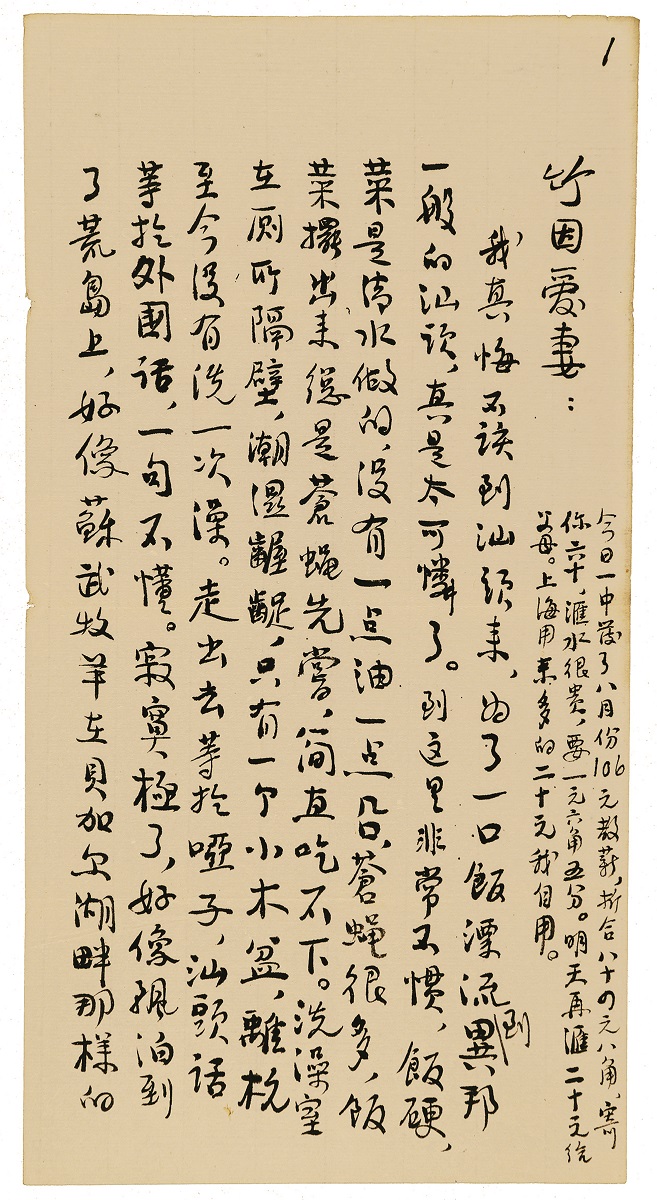 1
竹因爱妻：
今日一中發了八月份106元教薪，折合八十四元八角，寄
你六十，滙水很贵，要一元六角五分。明天再滙二十元给
父母。上海用来多的二十元我自用。
我真悔不该到汕头来，为了一口飯漂流到異邦
一般的汕頭，真是太可憐了。到这里非常不惯，飯硬，
菜是清水做的，没有一点油一点，蒼蝇很多，飯
菜擺出来總是蒼蝇先嘗，简直吃不下。洗澡室
在厕所隔壁，潮濕齷齪，只有一个小木盆，離杭
至今没有洗一次澡。走出去等於啞子，汕頭话
等於外國话，一句不懂。寂寞極了，好像飘泊到
了荒島上，好像蘇武牧羊在貝加尔湖畔那様的